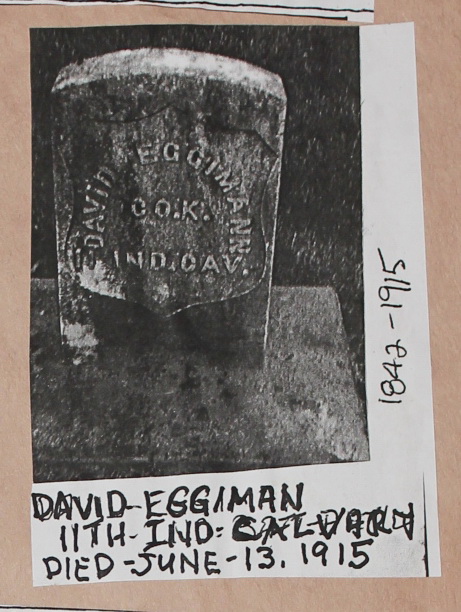 DAVID EGGIMANN
CO.K.
11 IND.CAV.
1842-1915
DAVID-EGGIMAN
11TH-IND-CALVARY
DIED-JUNE-13.1915